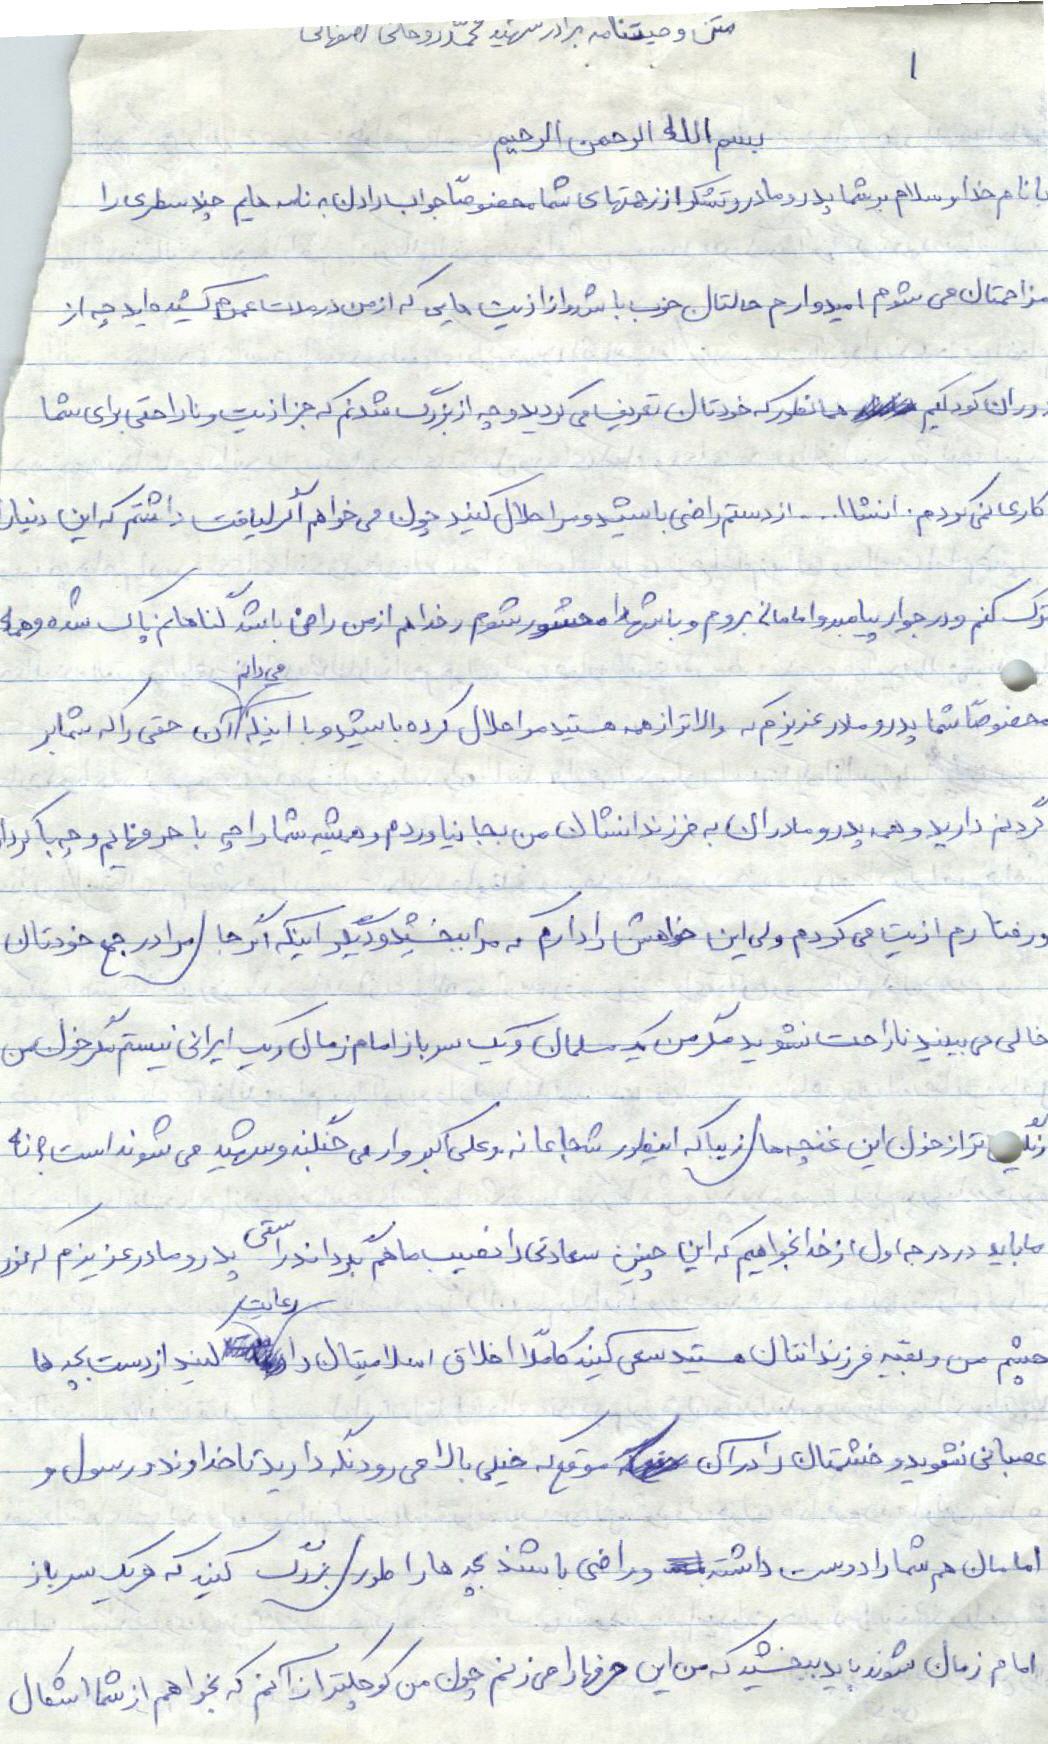 متن وصیتنامه برادر شهید محمّد روحانی اصفهانی
۱
بسم الله الرحمن الرحیم
با نام خدا و سلام بر شما پدر و مادر و تشکر از زحمتهای شما مخصوصاً جواب دادن به نامه هایم چند سطری را
مزاحمتان می شوم امیدوارم حالتان خوب باشد و از اذیت هایی که از من در مدت عمرم کشیده اید چه از
دوران کودکیم همانطور که خودتان تعریف می کردید و چه از بزرگ شدنم که جز اذیت و ناراحتی برای شما
کاری نمی کردم. انشاا... از دستم راضی باشید و مرا حلال کنید چون می خواهم اگر لیاقت داشتم که این دنیا را
ترک کنم و در جوار پیامبر و امامانم بروم و با شهدا محشور شوم و خدا هم از من راضی باشد گناهانم پاک شده و همه
مخصوصاً شما پدر و مادر عزیزم که والاتر از همه هستید مرا حلال کرده باشید و با اینکه می دانم آن حقی را که شما بر
گردنم دارید و همه پدر و مادران به فرزندانشان من بجا نیاوردم و همیشه شما را چه با حرفهایم و چه با کردار
و رفتارم اذیت می کردم ولی این خواهش را دارم که مرا ببخشید و دیگر اینکه اگر جای مرا در جمع خودتان
خالی می بینید ناراحت نشوید مگر من یک مسلمان و یک سرباز امام زمان و یک ایرانی نیستم مگر خون من
رنگین تر از خون این غنچه های زیبا که اینطور شجاعانه و علی اکبر وار می جنگند و شهید می شوند است؟ نه
ما باید در درجه اول از خدا بخواهیم که این چنین سعادتی را نصیب ما هم بگرداند راستی پدر و مادر عزیزم که نور
چشم من و بقیه فرزندانتان هستید سعی کنید کاملاً اخلاق اسلامیتان را رعایت کنید از دست بچه ها
عصبانی نشوید و خشمتان را در آن موقع که خیلی بالا می رود نگه دارید تا خداوند و رسول و
امامان هم شما را دوست داشته و راضی باشند بچه ها را طوری بزرگ کنید که هر یک سرباز
امام زمان شوند باید ببخشید که من این حرفها را می زنم چون من کوچکتر از آنم که بخواهم از شما اشکال